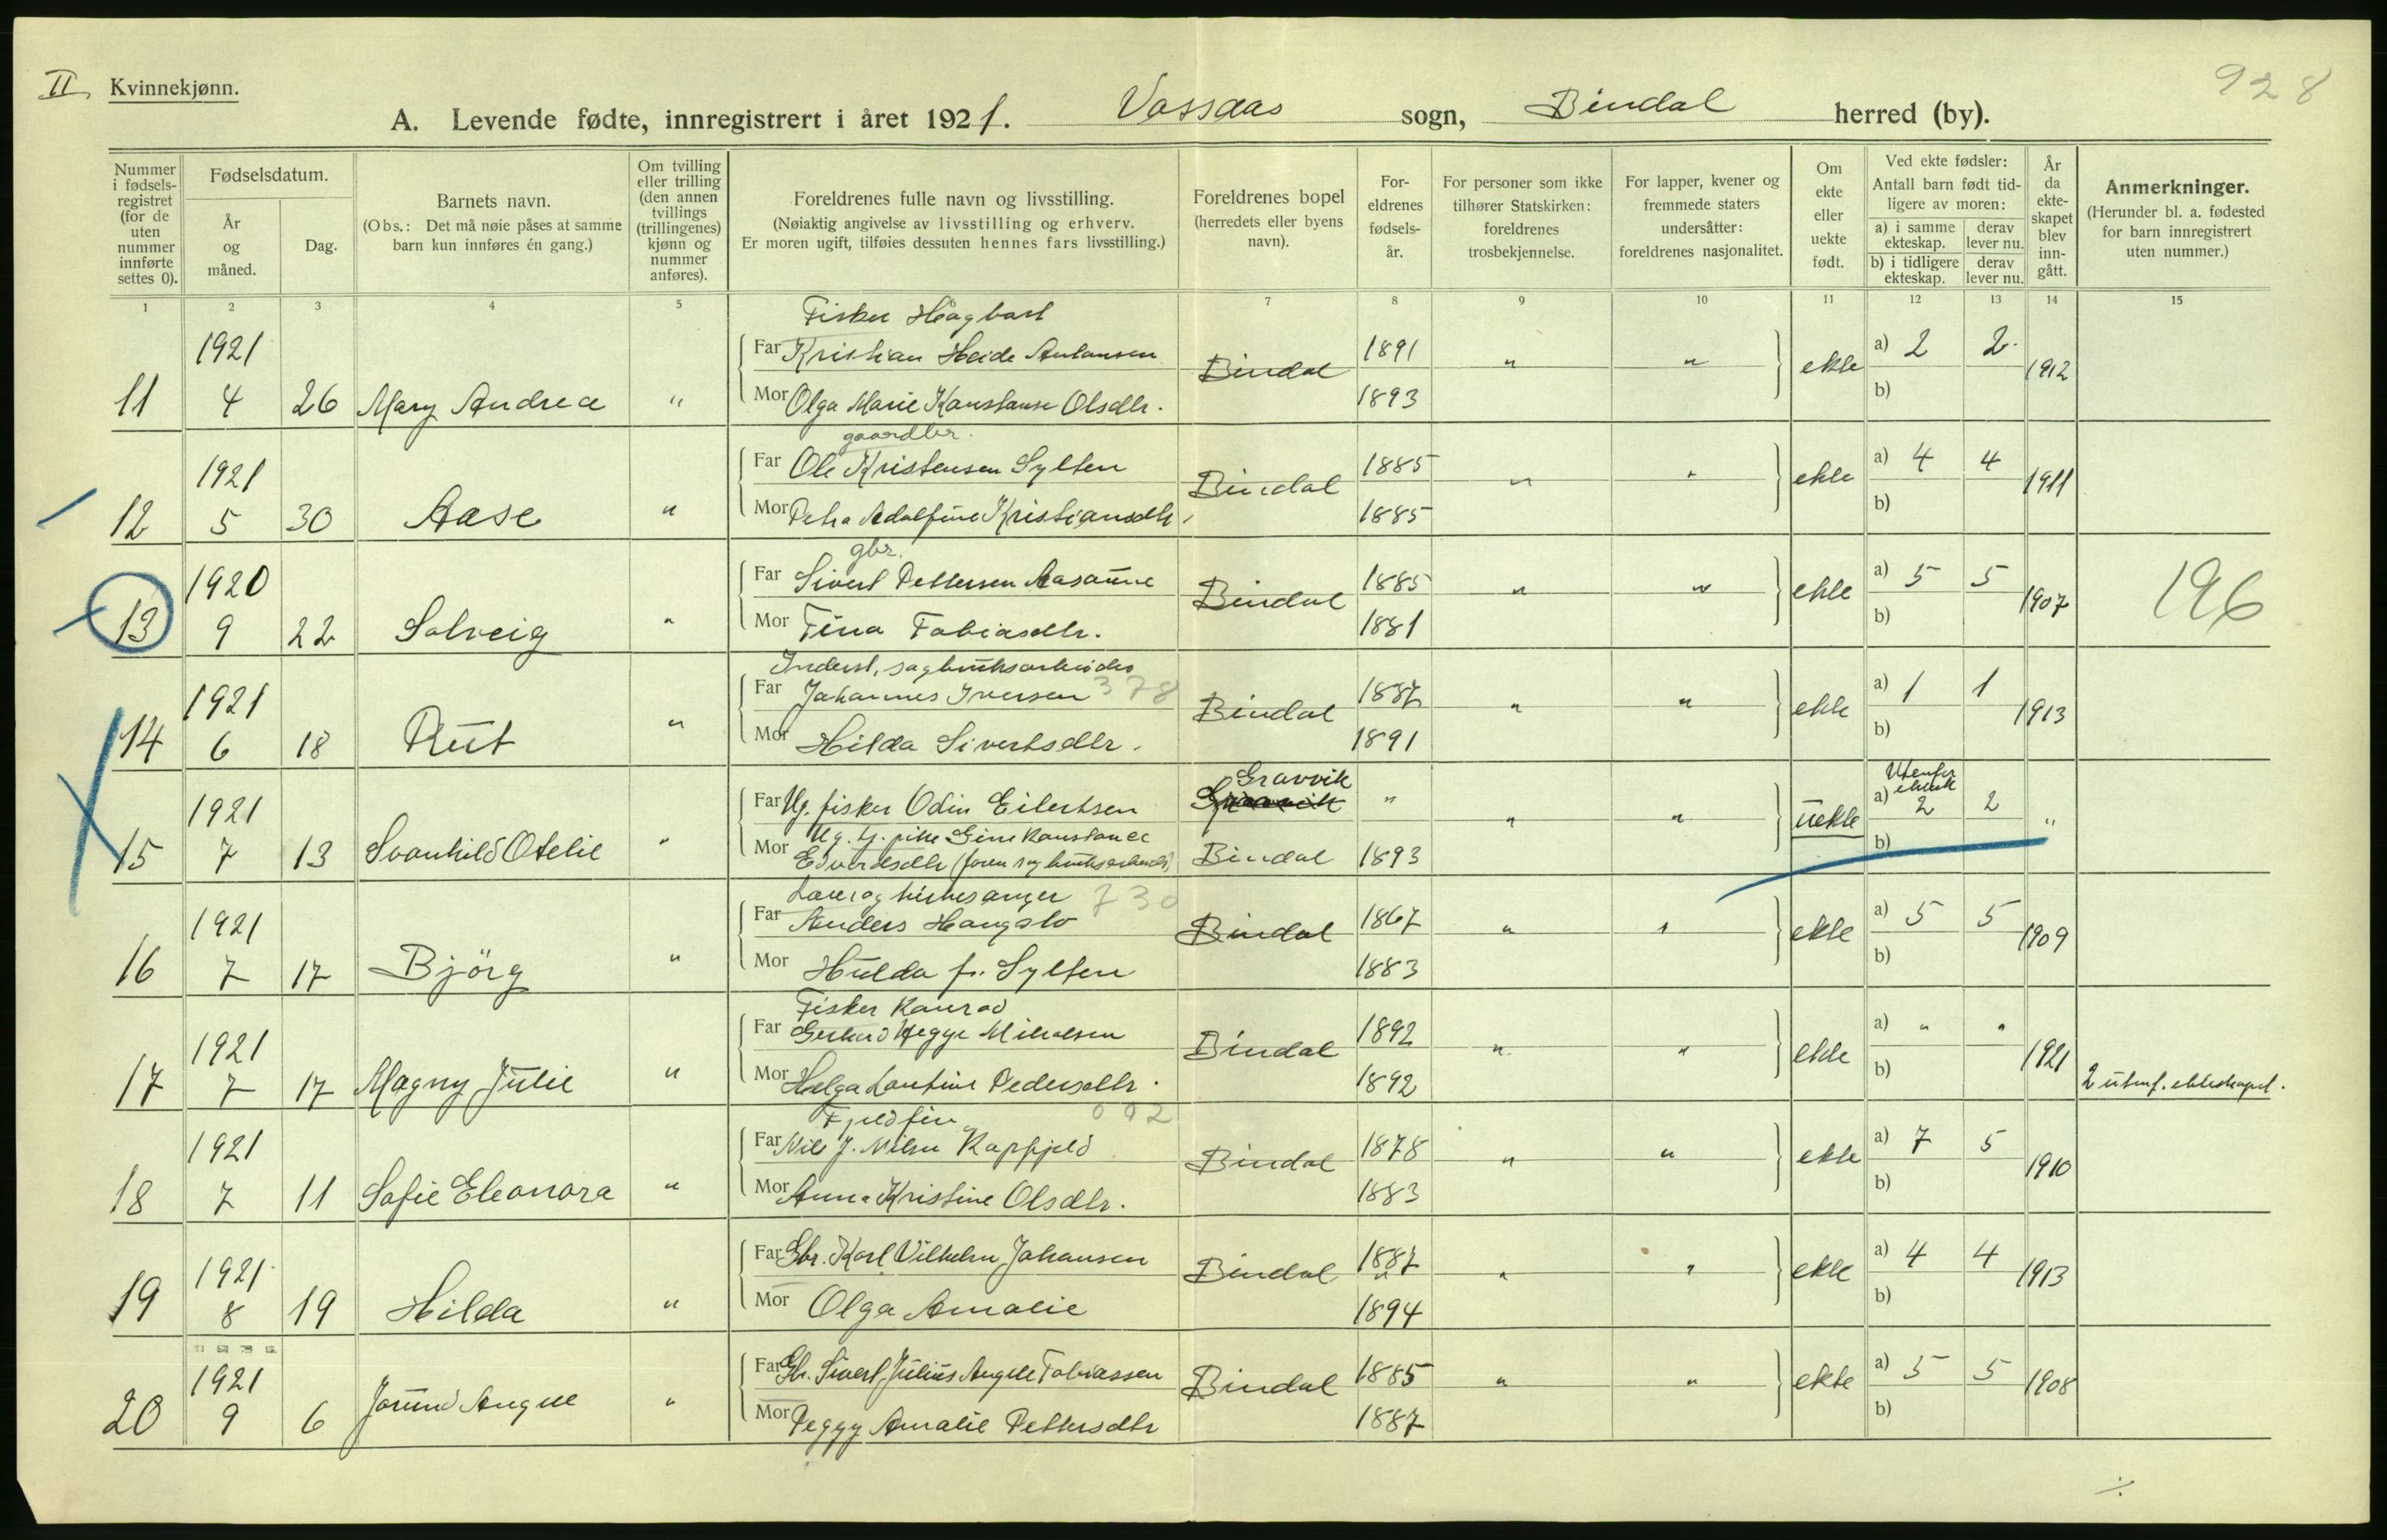 II, Kvinnekjønn.
928
A. Levende fødte, innregistrert i året 1921. Vassaas sogn, Bindal herred (by).
Nummer i fødsels-registret (for de uten nummer innførte settes 0).
Fødselsdatum.
År og måned.
Dag.
Barnets navn.
(Obs.: Det må nøie påses at samme barn kun innføres én gang.)
Om tvilling eller trilling (den annen tvillings (trillingenes) kjønn og nummer anføres).
Foreldrenes fulle navn og livsstilling.
(Nøiaktig angivelse av livsstilling og erhverv.
Er moren ugift, tilføies dessuten hennes fars livsstilling.)
Foreldrenes bopel (herredets eller byens navn).
For-eldrenes fødsels-år.
For personer som ikke tilhører Statskirken: foreldrenes trosbekjennelse.
For lapper, kvener og fremmede staters undersåtter: foreldrenes nasjonalitet.
Om ekte eller uekte født.
Ved ekte fødsler: Antall barn født tid-ligere av moren:
a) i samme ekteskap. derav lever nu.
b) i tidligere ekteskap. derav lever nu.
År da ekte-skapet blev inn-gått.
Anmerkninger.
(Herunder bl. a. fødested for barn innregistrert uten nummer.)
1 2 3 4 5 7 8 9 10 11 12 13 14 15
Fisker Hågbart
1921 Far Kristian Heide Antonsen Bindal 1891 " " ekte a) 2 2 1912
11 4 26 Mary Andrea " Mor Olga Marie Konstanse Olsdtr. 1893 b)
gaardbr.
1921 Far Ole Kristensen Sylten Bindal 1885 " " ekte a) 4 4 1911
12 5 30 Aase " Mor Petra Adolfine Kristiansdtr. 1885 b)
gbr.
1920 Far Sivert Pettersen Aasaune Bindal 1885 " " ekte a) 5 5 1907 196
13 9 22 Solveig " Mor Tina Tobiasdtr. 1881 b)
Inderst, sagbruksarbeider
1921 Far Johannes Iversen 378 Bindal 1887 " " ekte a) 1 1 1913
14 6 18 Rut " Mor Hilda Sivertsdtr. 1891 b)
Gravvik Utenfor ektesk
1921 Far Ug. fisker Odin Eilertsen " " " uekte a) 2 2 "
Ug. tj. pike Gine Konstance
15 7 13 Svanhild Otelie " Mor Edvardsdtr (faren sagbruksarbeid.) Bindal 1893 b)
Lærer og kirkesanger 730
1921 Far Anders Hangslo Bindal 1867 " " ekte a) 5 5 1909
16 7 17 Björg " Mor Hulda f. Sylten 1883 b)
Fisker Konrad
1921 Far Gerhard Hegge Mikalsen Bindal 1892 " " ekte a) " " 1921
17 7 17 Magny Julie " Mor Helga Lovfine Pedersdtr. 1892 b) 2 utenf. ekteskapet.
Fjeldfin 002
1921 Far Nils J. Nilsen Kappfjeld Bindal 1878 " " ekte a) 7 5 1910
18 7 11 Sofie Eleonora " Mor Anna Kristine Olsdtr. 1883 b)
1921 Far Gbr. Karl Vilhelm Johansen Bindal 1887 " " ekte a) 4 4 1913
19 8 19 Hilda " Mor Olga Amalie 1894 b)
1921 Far Gbr. Sivert Julius Angell Tobiassen Bindal 1885 " " ekte a) 5 5 1908
20 9 6 Jorund Angell " Mor Peggy Amalie Pettersdtr 1887 b)